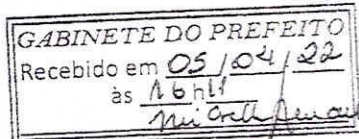 GABINETE DO PREFEITO
Recebido em 05/04/22
às 16h11